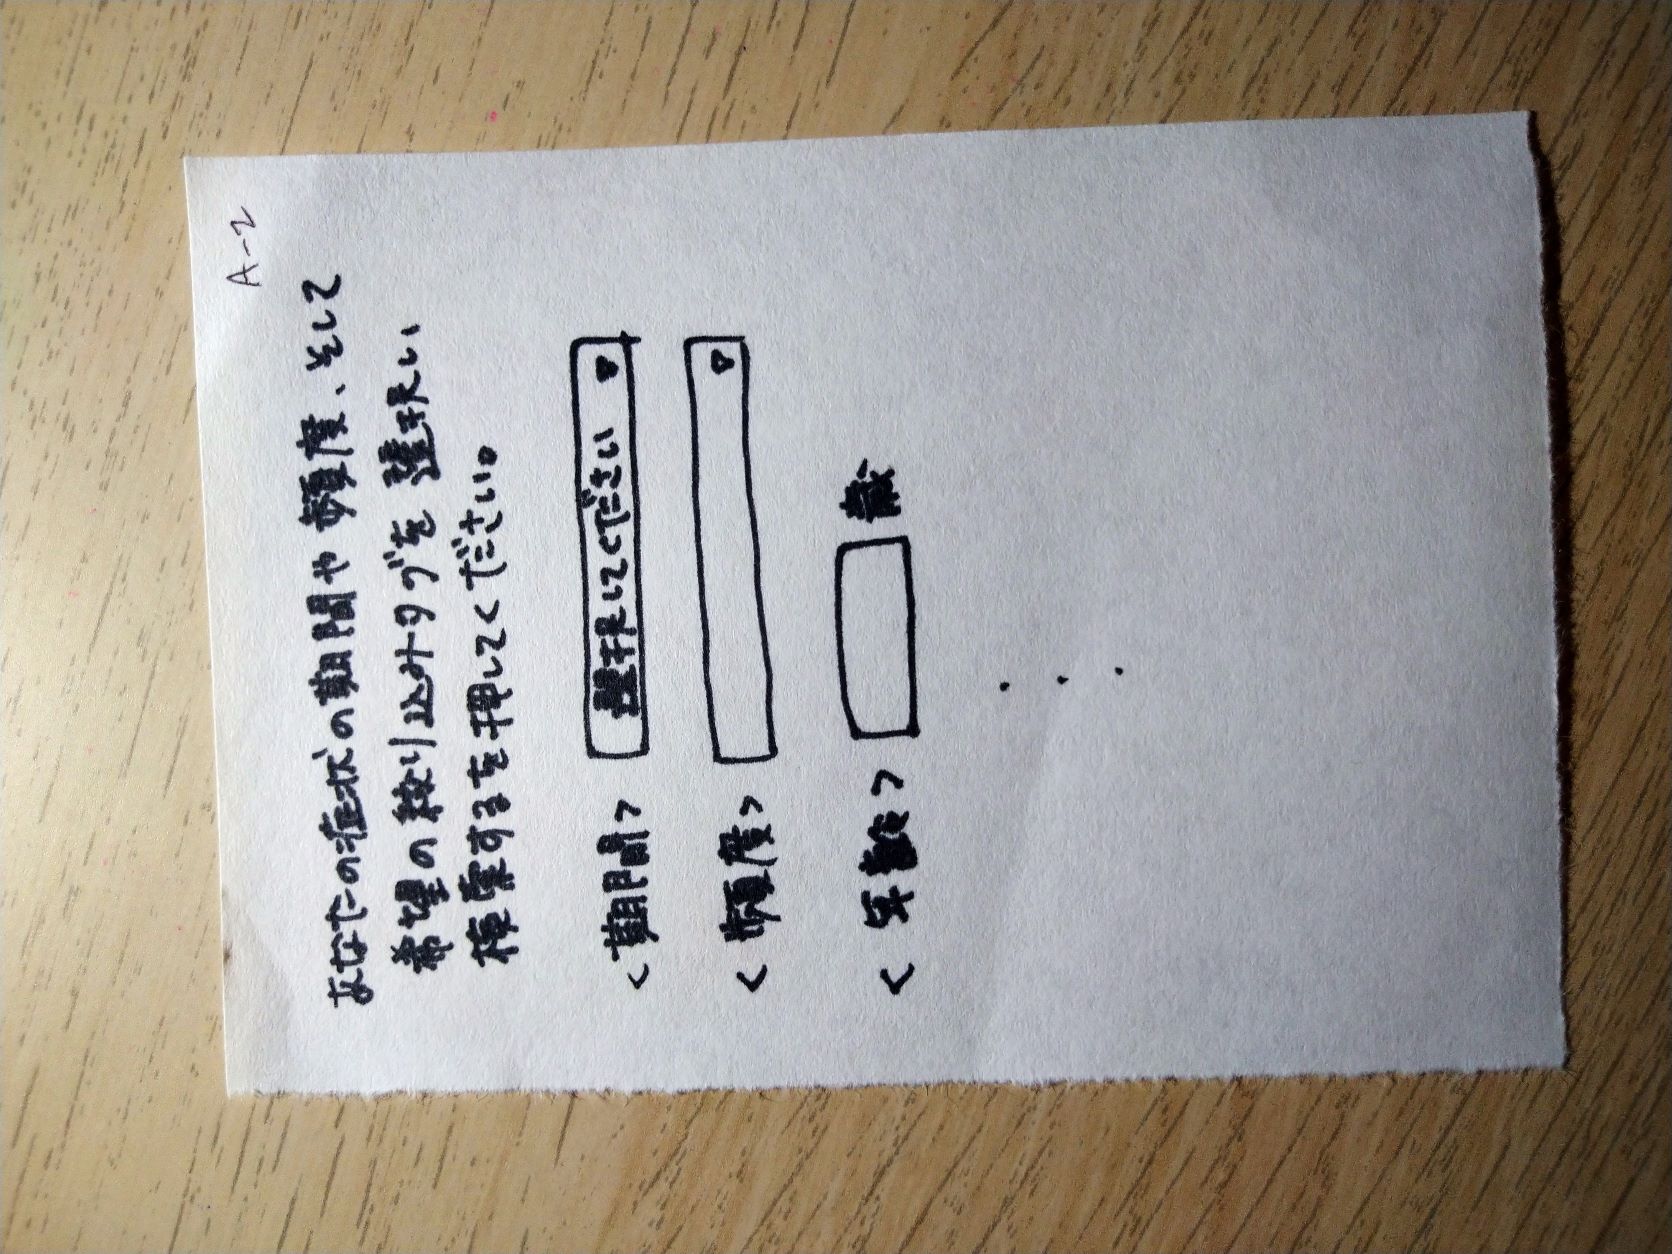 A-2
あなたの症状の期間や 頻度、そして
希望の絞り込みタブを 選択し、
検索するを押してください。
<期間> 選択してください ▽
<頻度> ▽
<年齢> 歳